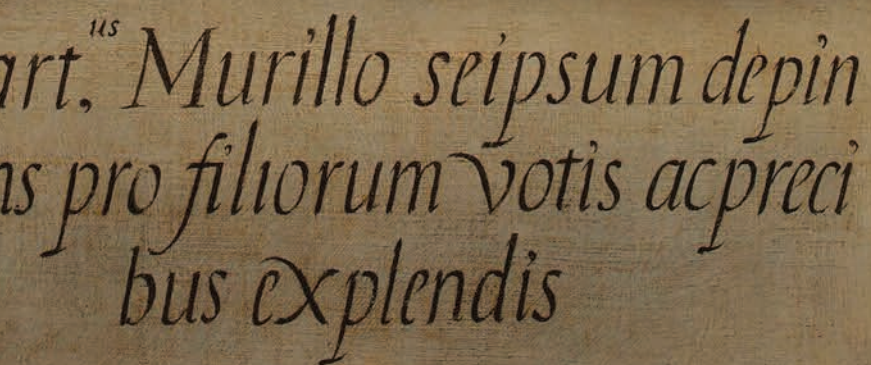 art.us Murillo seipsum depin
ns pro filiorum votis acpreci
bus explendis